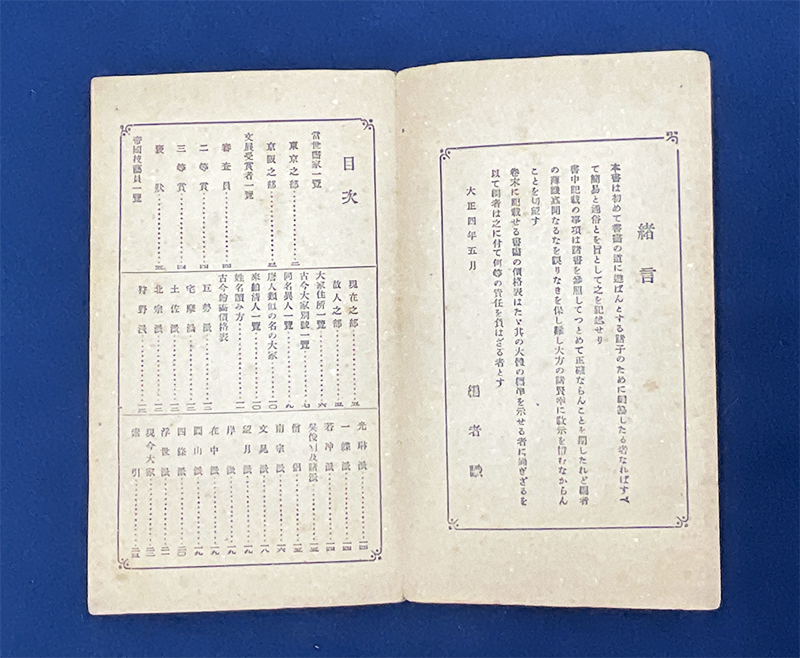 緒言
本書は初めて書畵の道に遊ばんとする諸子のために編纂したる者なればすべ
て簡易と通俗とを旨として之を記述せり
書中記載の事項は諸書を參照してつとめて正確ならんことを期したれど編者
の薄識寡聞なるなを誤りなきを保し難し大方の諸賢幸に敎示を惜むなからん
ことを切望す
卷末に記載せる書畵の價格表はたゞ其の大體の標準を示せる者に過ぎざるを
以て編者は之に付て何等の責任を負はざる者とす
大正四年五月
編者識
目次
當世畵家一覽
東京之部
京阪之部
文展受賞者一覽
審査員…四
二等賞…四
三等賞…四
褒狀
帝國技藝員一覽
現在之部
故人之部
大家住所一覽…六
古今大家別號一覽…七
同名異人一覽…九
唐人類似の名の大家…一〇
來舶淸人一覽…一〇
姓名頭か方…一一
古今書畵價格表
巨勢派…一二
宅摩派
土佐派
北宗派
狩野派
光琳派…一四
一蝶派…一四
若冲派…一四
吳俊明及諸派…一五
僧侶…一五
南宗派…一六
文晁派…一八
望月派…一九
岸派…一九
在中派…一九
圓山派…一九
四條派…二〇
浮世派…二一
現今大家…二二
索引